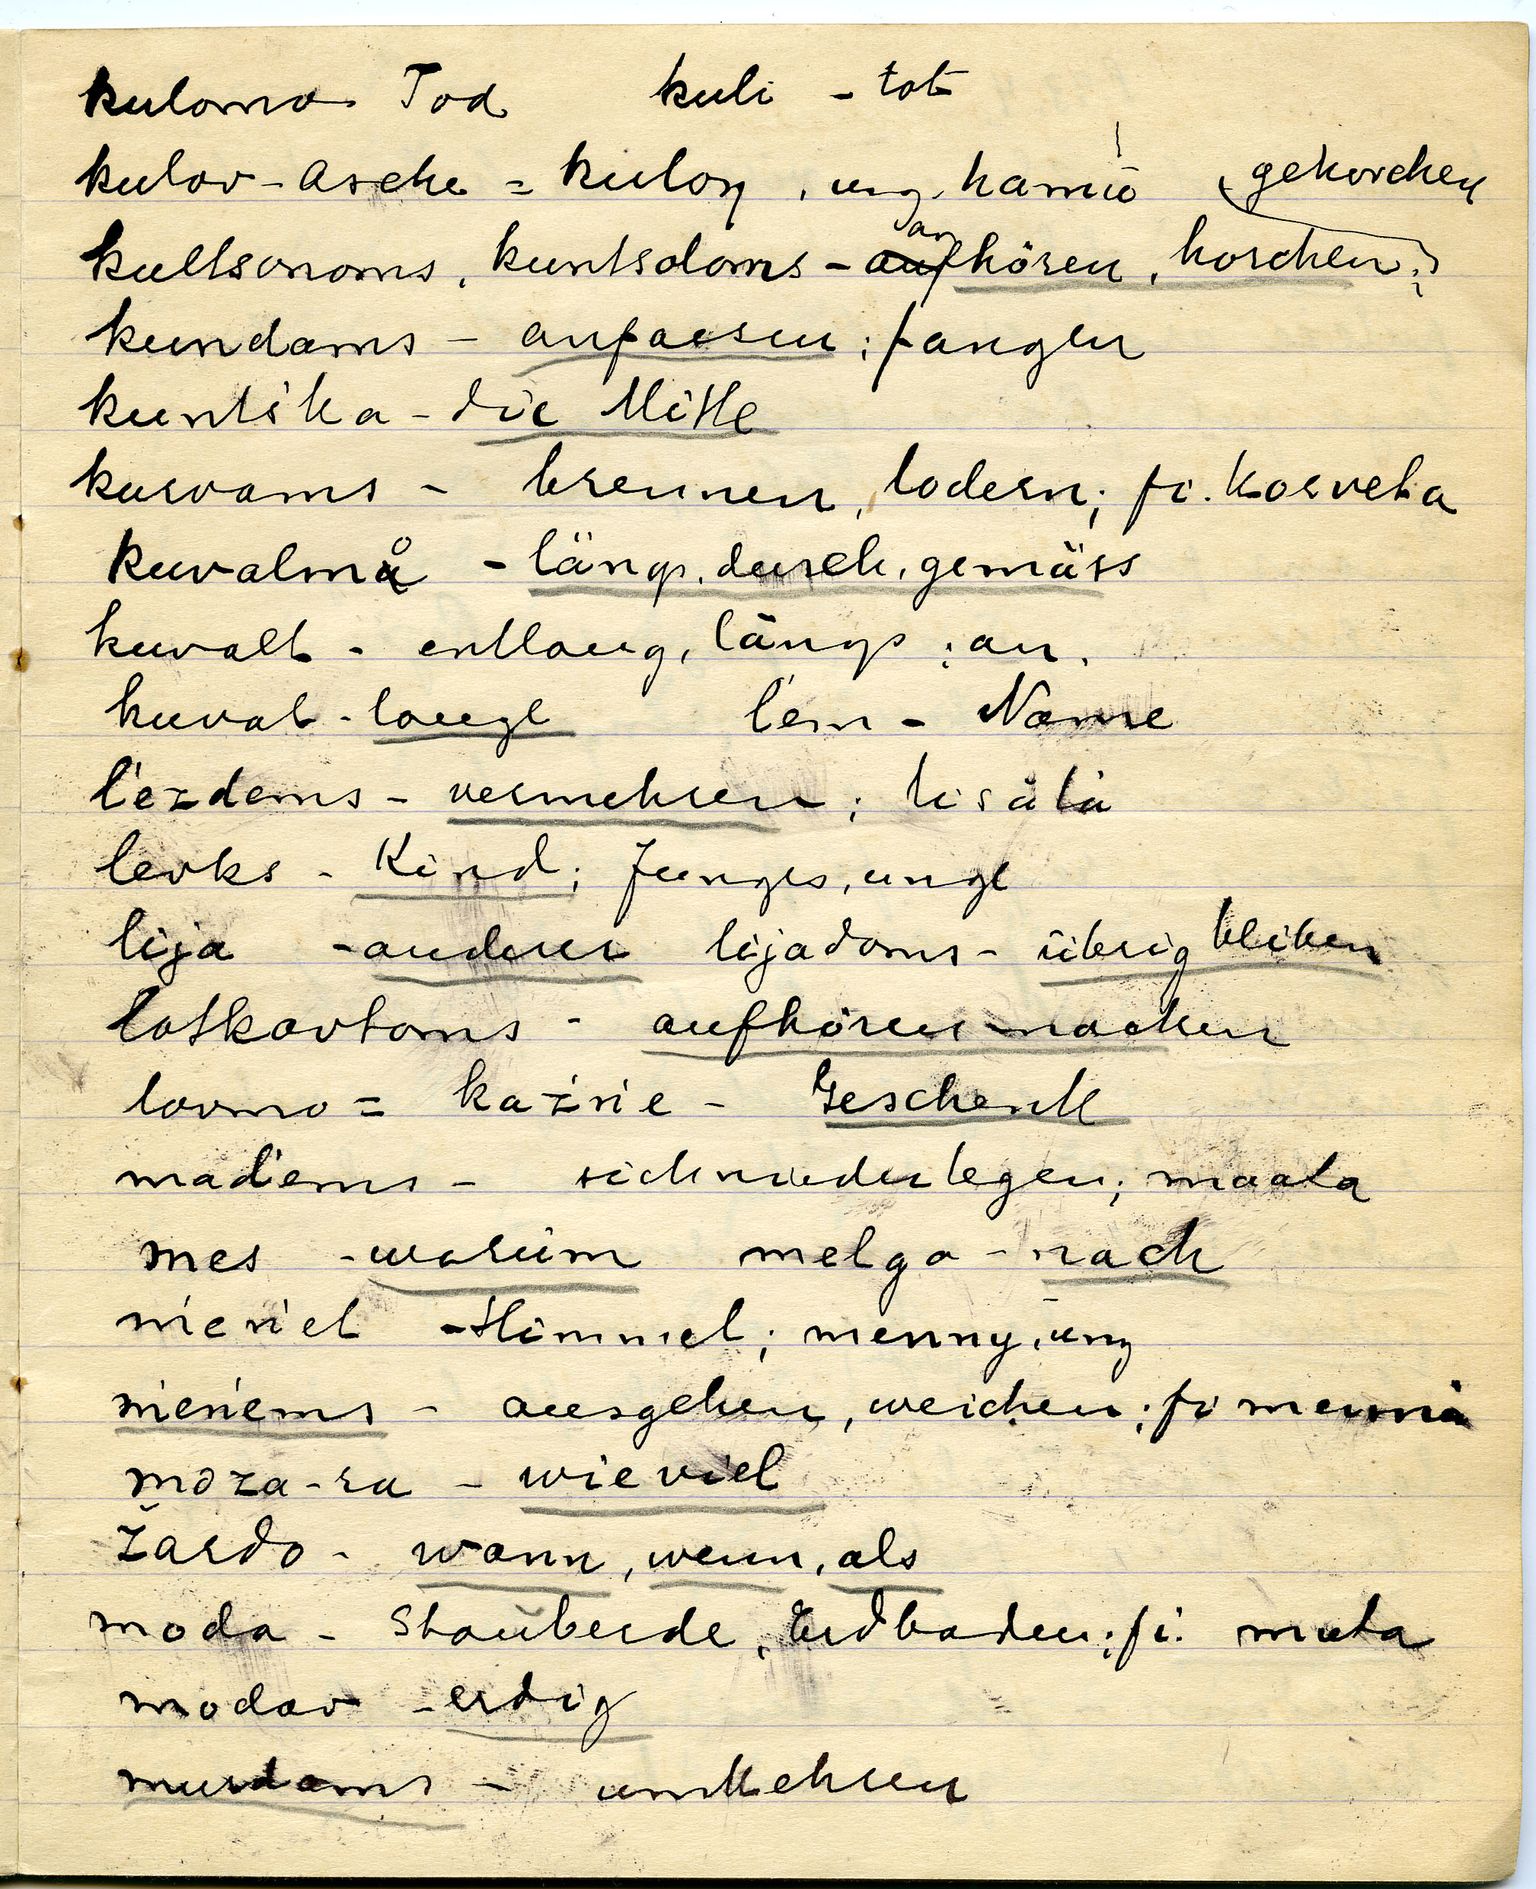 kuloma Tod kuli - tot
kulov - Asche = kuloŋ, ung. hamú gehorchen
kultsonoms, kuntsoloms - anhören, horchen;
kundams - anfassen; fangen
kuntśka - die Mitte
kurvams - brennen, lodern; fi. korveta
kuvalmå - längs, durch, gemäss
kuvalt - entlang, längs; an.
kuvat - lange l'em - Name
l'ezdems - vermehren; lisätä
levks - Kind; Junges, unge
lija - anderer lijadoms - übrig bleiben
lotkavtoms - aufhören machen
lovmo = kaźńe - Geschenk
mad'ems - sich niederlegen; maata
mes - warum melga - nach
meńel - Himmel; menny, ung
meńems - ausgehen, weichen; fi mennä
moza-ra - wieviel
žardo - wann, wenn, als
moda - Stauberde, Erdboden; fi. muta
modav - erdig
murdams - umkehren